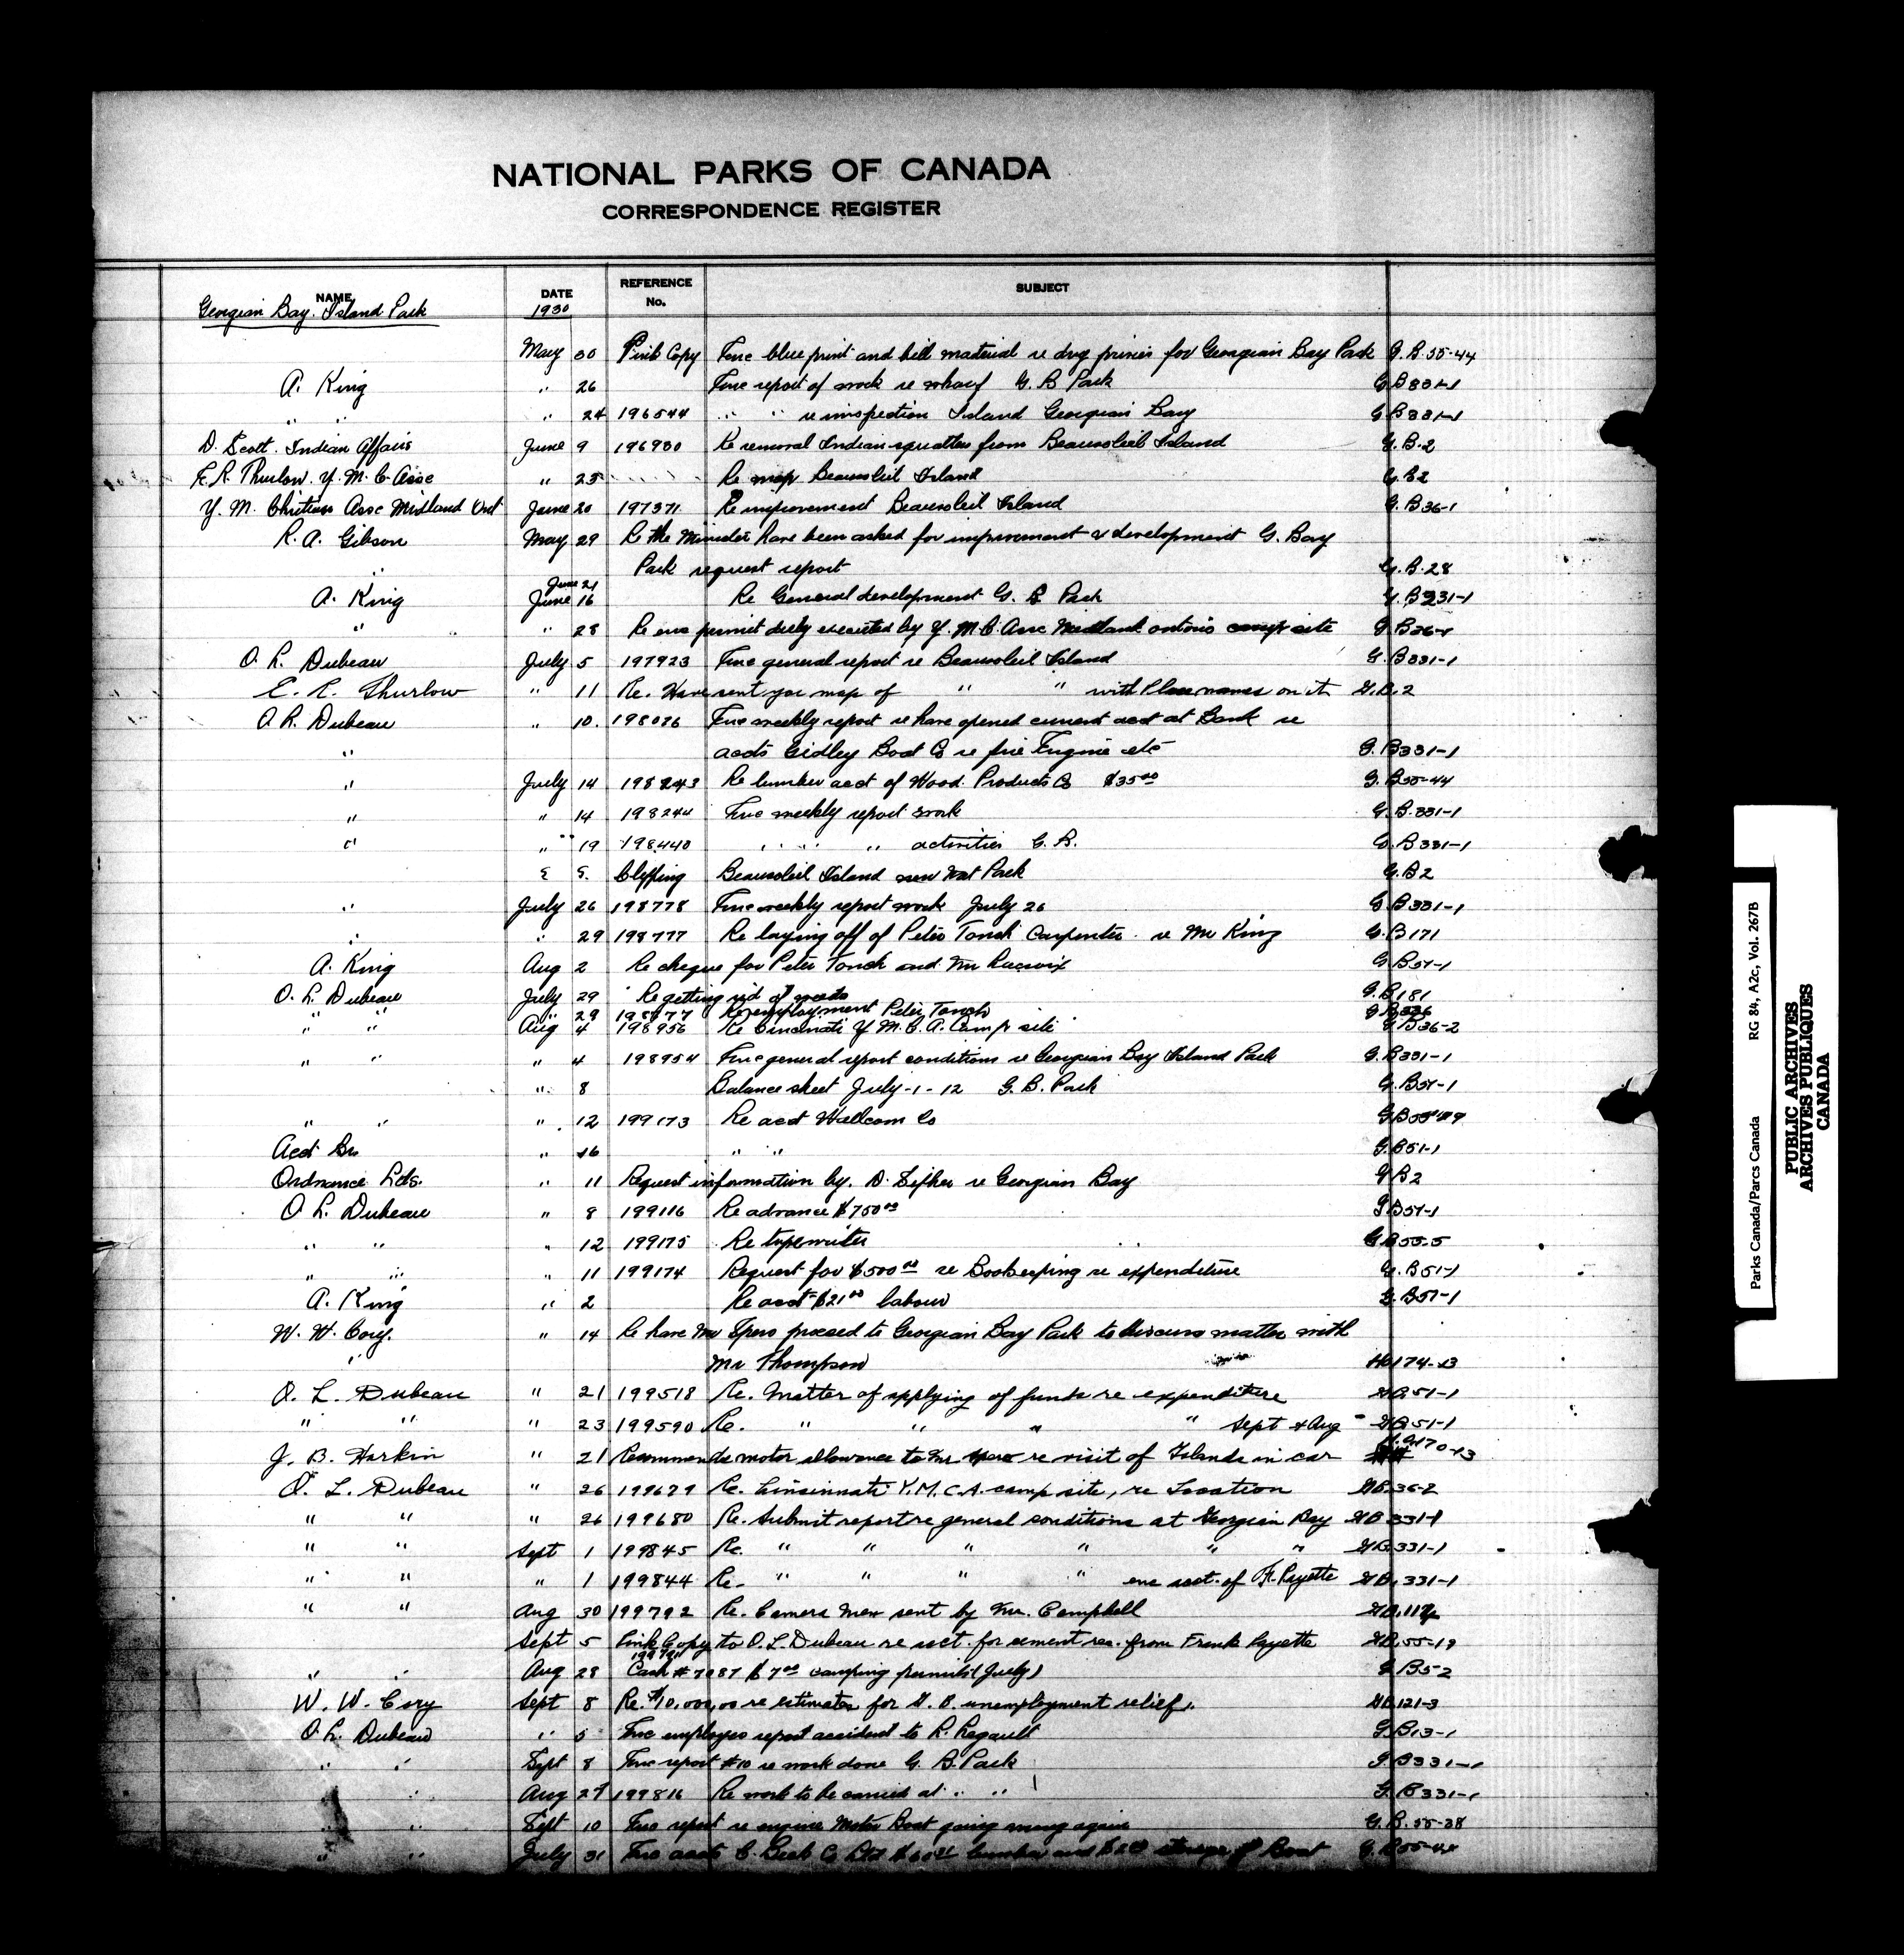 NATIONAL PARKS OF CANADA
CORRESPONDENCE REGISTER
NAME DATE REFERENCE No. SUBJECT
Georgian Bay. Island Park 1930
May 30 Pink Copy Enc blue print and bill material re dug privies for Georgian Bay Park G.B.55-44
A. King " 26 Enc report of work re wharf G B Park G B 331-1
" " " 24 196544 " " re inspection Island Georgian Bay G B 331-1
D. Scott. Indian Affairs June 9 196930 Re removal Indian squatters from Beausoleil Island G.B.2
E.R. Thurlow Y.M.C. Asse " 25 Re map Beausoleil Island G.B2
Y.M. Christian Asse Midland Ont June 20 197371 Re improvement Beausoleil Island G.B36-1
R.A. Gibson May 29 Re the Minister have been asked for improvement & development G. Bay
" Park request report G.B.28
June 21
A. King June 16 Re General development G. B Park G.B331-1
" " 28 Re enc permit duly executed by Y.M.C. Asse Midland ontario camp site G B36-1
O.L. Dubeau July 5 197923 Enc general report re Beausoleil Island G.B331-1
E. R. Thurlow " 11 Re. Have sent you map of " " with Place names on it G.B.2
O.L. Dubeau " 10. 198086 Enc weekly report re have opened current acct at Bank re
" accts Gidley Boat Co re fire Engine etc G.B331-1
" July 14 198243 Re lumber acct of Wood Products Co $35.00 G.B55-44
" " 14 198244 Enc weekly report work G.B.331-1
" " 19 198440 " " " activities G.B. G.B331-1
Clipping Beausoleil Island new Nat Park G.B2
" July 26 198778 Enc weekly report work July 26 G B331-1
" " 29 198777 Re laying off of Peter Tonch Carpenter re Mr King G.B171
A. King Aug 2 Re cheque for Peter Tonch and Mr G B51-1
O.L. Dubeau July 29 Re getting rid of weeds G.B181
" 29 198777 Re employment Peter Tonch G B336
" " Aug 4 198956 Re Cincinati Y M.C.A. Camp site G B36-2
" " " 4 198954 Enc general report conditions re Georgian Bay Island Park G.B331-1
" 8 Balance sheet July-1-12 G.B. Park G.B51-1
" " " 12 199173 Re acct Wallcom Co G B55-19
Acct Br. " 16 " " G.B51-1
Ordnance Lds. " 11 Request information by. D. Sifker re Georgian Bay G B2
O L. Dubeau " 8 199116 Re advance $750.00 G B51-1
" " " 12 199175 Re typewriter G B55-5
" " " 11 199174 Request for $500.00 re Bookeeping re expenditure G.B51-1
A. King " 2 Re acct $21.00 labour G.B51-1
W.W. Cory. " 14 Re have Mr Spero proceed to Georgian Bay Park to discuss matter with
" Mr Thompson 174-13
O. L. Dubeau " 21 199518 Re. Matter of applying of funds re expenditure G.B.51-1
" " " 23 199590 Re. " " " " Sept & Aug G.B.51-1
J. B. Harkin " 21 Recommends motor allowance to Mr Spero re visit of Islands in car 170-13
O. L. Dubeau " 26 199679 Re. Cinsinnati Y.M.C.A. camp site, re Location G.B.36-2
" " " 26 199680 Re. Submit report re general conditions at Georgian Bay G.B 331-1
" " Sept 1 199845 Re. " " " " " " G.B.331-1
" " " 1 199844 Re- " " " " enc acct. of Fr. Payette G.B.331-1
" " Aug 30 199792 Re. Camera Men sent by Mr. Campbell G.B.117
Sept 5 Pink Copy to O.L. Dubeau re acct. for cement rec. from Frank Payette G.B.55-19
" " Aug 28 Cash #7087 $7.00 camping permits (July) G B52
W. W. Cory Sept 8 Re. $10,000.00 re estimates for G.B. unemployment relief. G.B.121-3
O.L. Dubeau " 5 Enc employes report accident to R. Regault G.B13-1
" " Sept 8 Enc report #10 re work done G.B. Park G.B331-1
" " Aug 27 199816 Re work to be carried at " " G.B331-1
" " Sept 10 Enc report re engine Motor Boat going wrong again G.B.55-38
" " July 31 Enc accts C. Beck Co Ltd lumber and storage of Boat G.B55-44
Parks Canada/Parcs Canada RG 84, A2c, Vol. 267B
PUBLIC ARCHIVES
ARCHIVES PUBLIQUES
CANADA